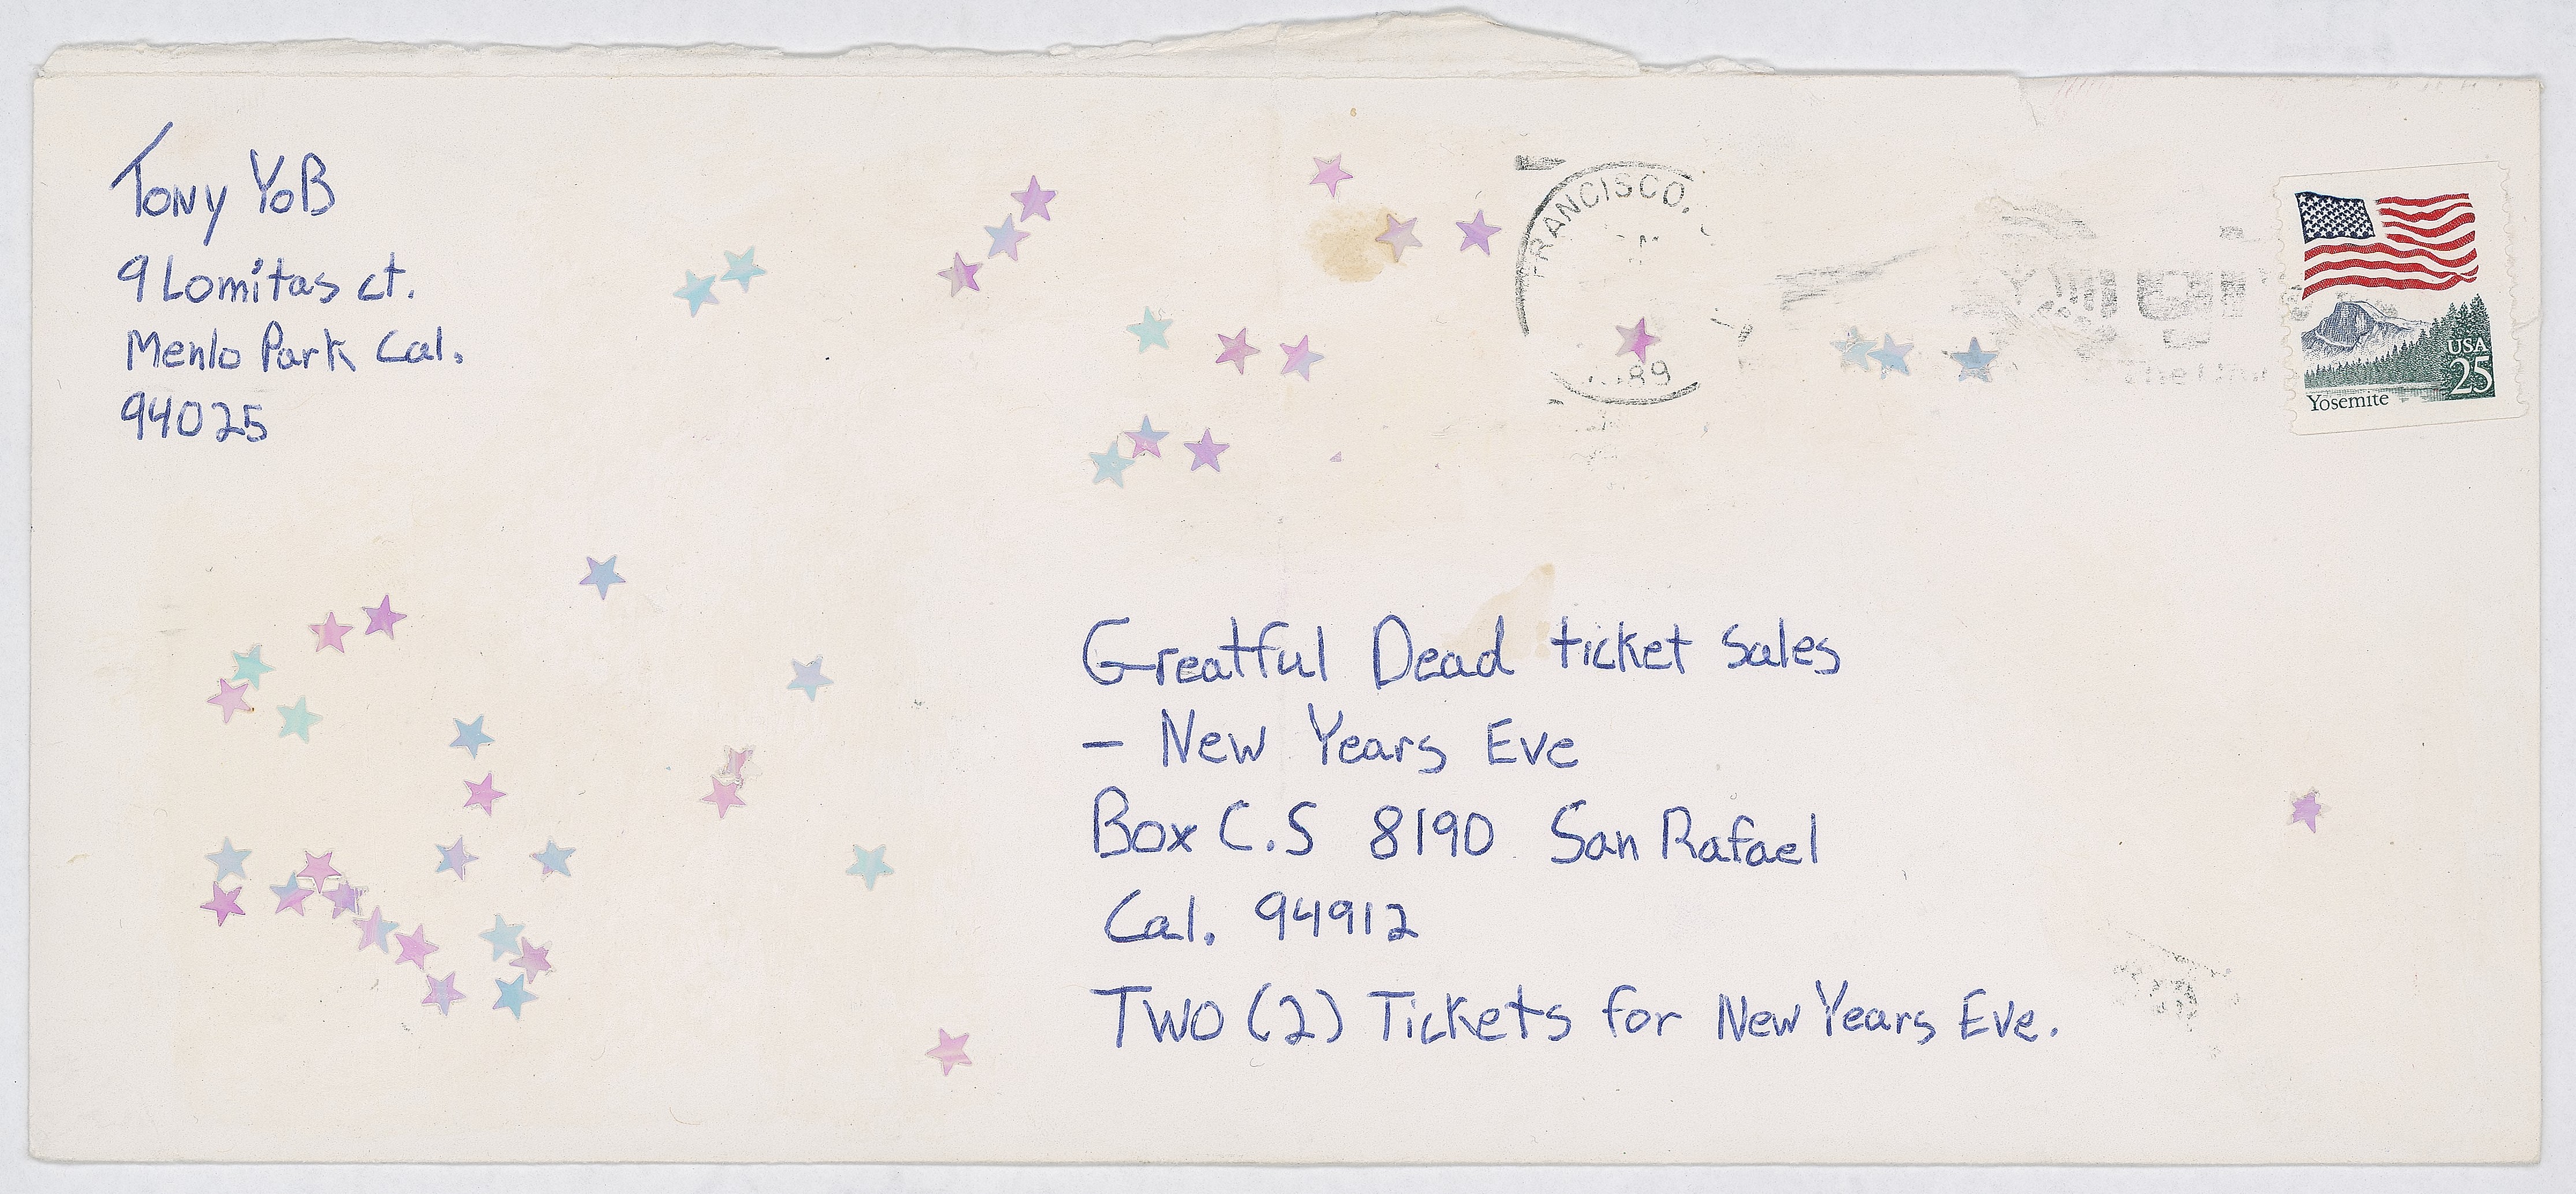 Tony YoB
9 Lomitas ct.
Menlo Park Cal.
94025
FRANCISCO.
89
USA
25
Yosemite
Greatful Dead ticket sales
— New Years Eve
Box C.S 8190 San Rafael
Cal. 94912
Two (2) Tickets for New Years Eve.